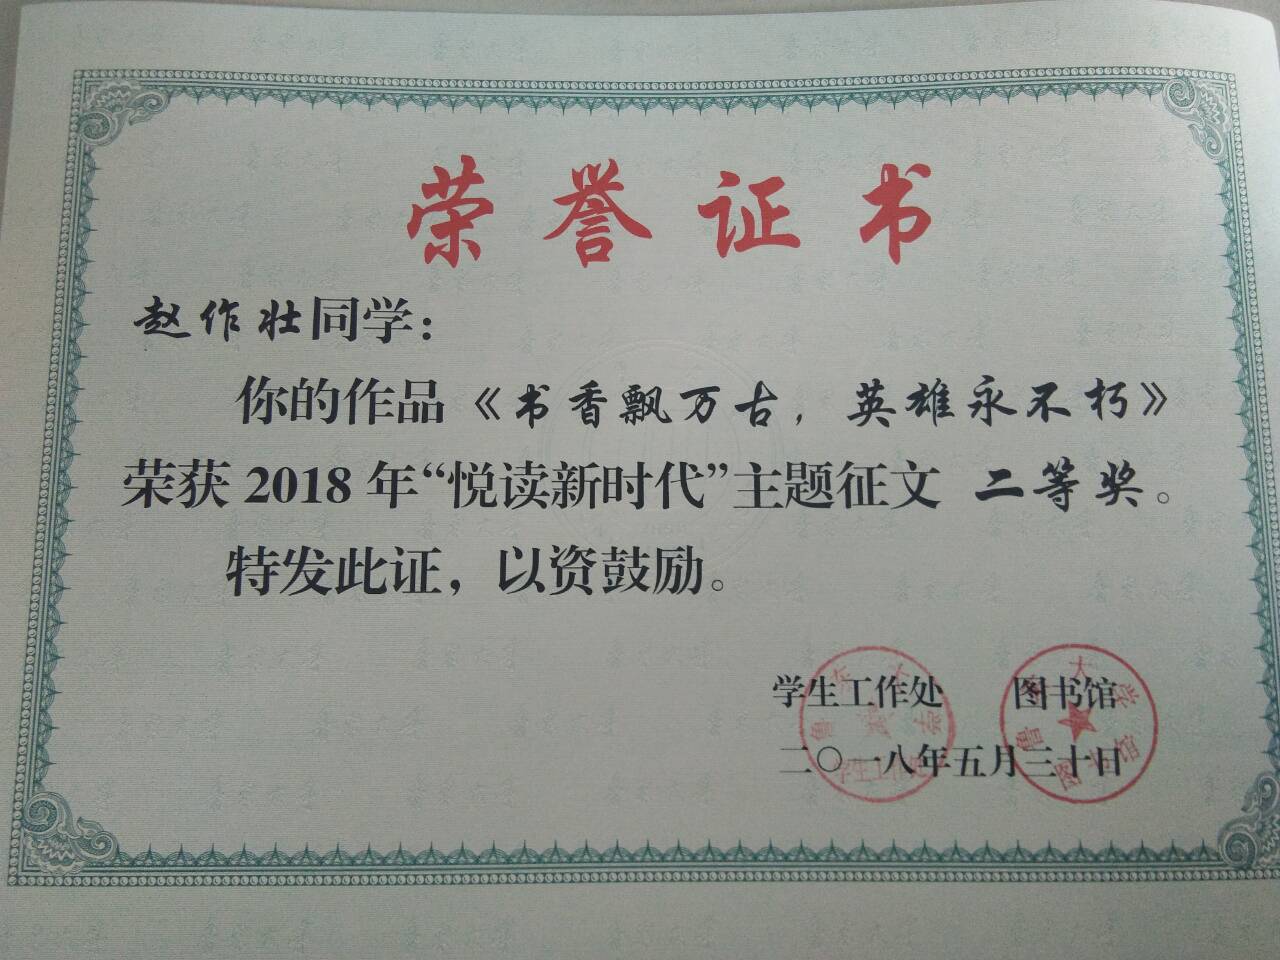 荣誉证书
赵作壮同学：
你的作品《书香飘万古，英雄永不朽》
荣获 2018 年“悦读新时代”主题征文 二等奖。
特发此证，以资鼓励。
学生工作处 图书馆
二〇一八年五月三十日